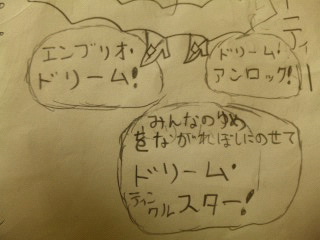 エンブリオ・
ドリーム!
ドリーム!
アンロック!
ティー
みんなのゆめ
をながれぼしにのせて
ドリーム・
ティンクルスター!